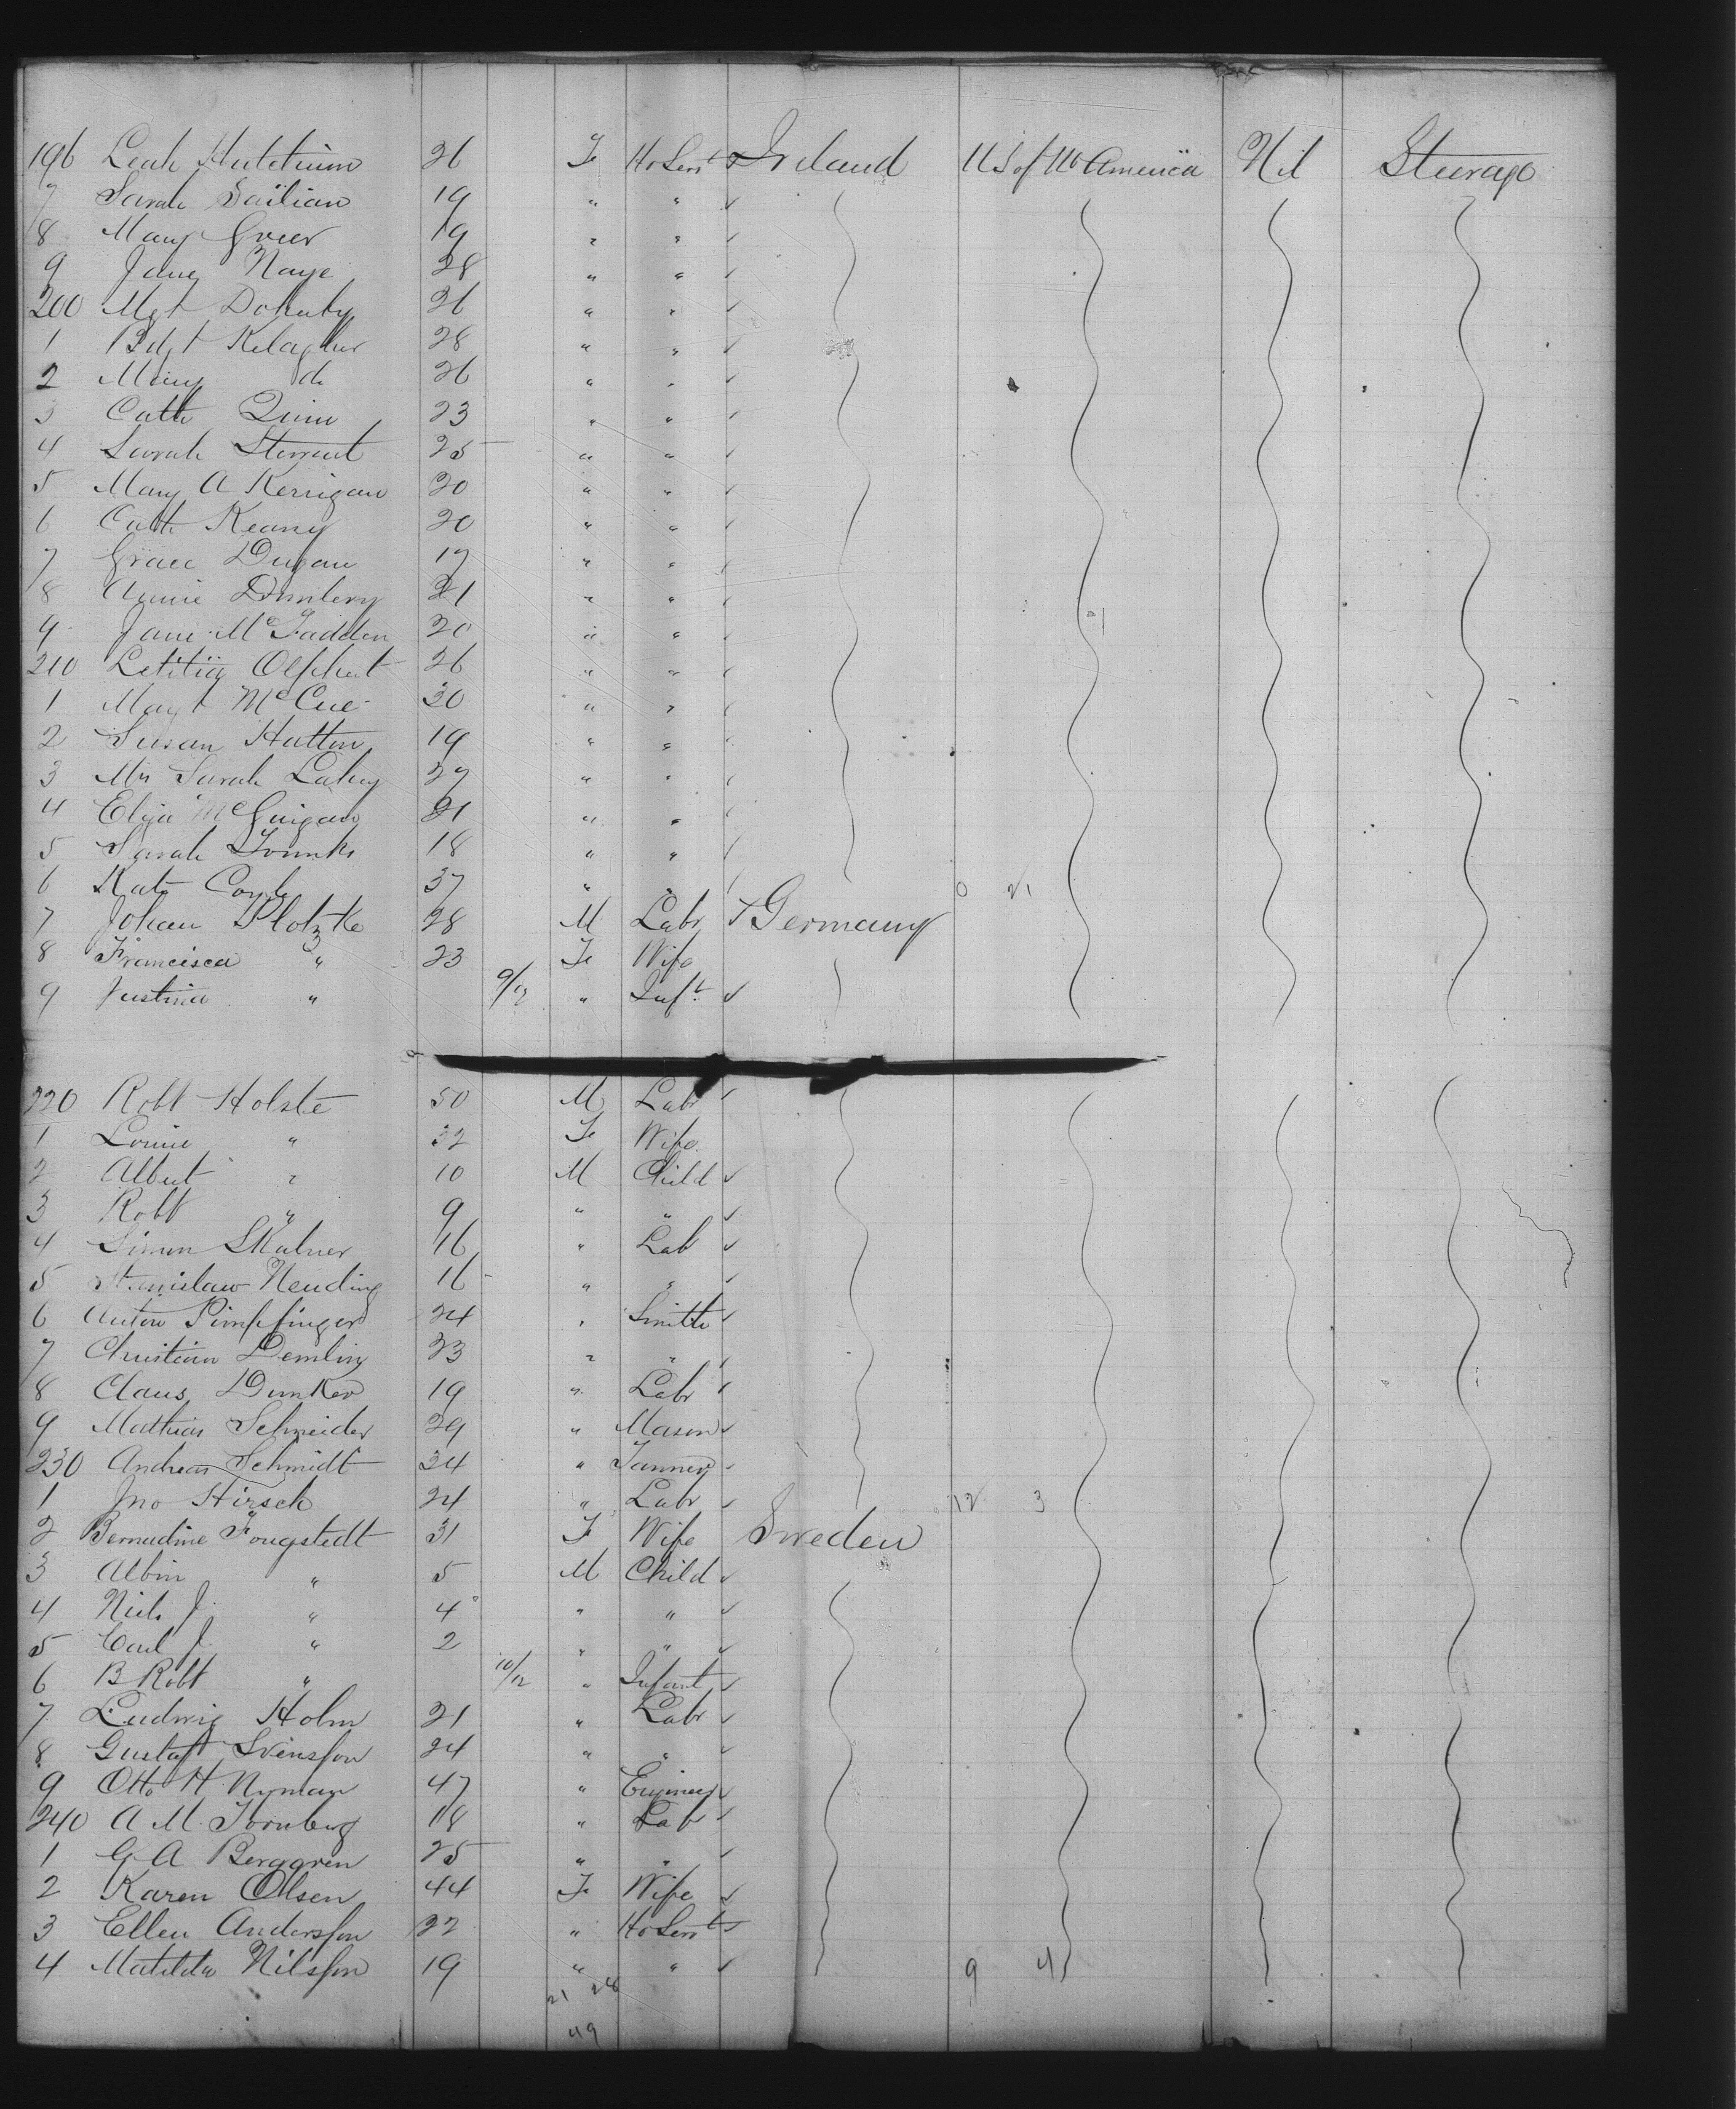 196 Leah 26 Fe Ho Servt Ireland U S of No America Nil Steerage
7 Sarah 19 " "
8 Mary Greer 19 " "
9 Jane Naye 28 " "
200 Mgt Doherty 26 " "
1 Bdgt Kelagher 28 " "
2 Mary do 26 " "
3 Cath Quin 23 " "
4 Sarah Sterrent 25 " "
5 Mary A Kerrigan 20 " "
6 Cath Keany 20 " "
7 Grace Dugan 17 " "
8 Annie 21 " "
9 Jane McFadden 20 " "
210 Letitia Olphert 26 " "
1 Magt McCue 30 " "
2 Susan Hatton 19 " "
3 Mrs Sarah Lahey 27 " "
4 Eliza McGuigan 21 " "
5 Sarah 18 " "
6 Kate 37 " "
7 Johan Plotzke 28 M Labr Germany
8 Francisca " 23 Fe Wife
9 Justina " 9/12 " Inft
220 Robt Holste 50 M Labr
1 Louise " 32 Fe Wife
2 Albert " 10 M Child
3 Robt " 9 " "
4 Simon Skalner 16 " Lab
5 Stanislaw Nending 16 " "
6 Anton Pimpfinger 24 " Smith
7 Christian Demling 23 " "
8 Claus Dunker 19 " Labr
9 Mathias Schneider 29 " Mason
230 Andreas Schmidt 34 " Tanner
1 Jno Hirsch 24 " Labr 12 3
2 Bernadine Fougstedt 31 Fe Wife Sweden
3 Albin " 5 M Child
4 Nils J " 4 " "
5 Carl J " 2 " "
6 B Robt " 10/12 " Infant
7 Ludwig Holm 21 " Labr
8 Gustaf Svensson 24 " "
9 Otto H Nyman 47 " Engineer
240 A M Tornberg 18 " Lab
1 G A Berggren 25 " "
2 Karen Olsen 44 Fe Wife
3 Ellen Andersson 22 " Ho Servt
4 Matilda Nilsson 19 " " 9 4
21 28
49